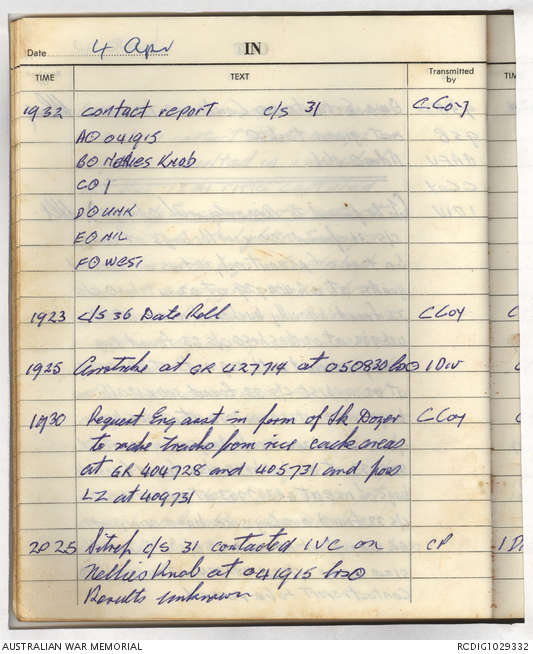 Date 4 Apr IN
TIME TEXT Transmitted by TIM
1932 contact report c/s 31 C Coy
AØ 041915
BØ Nellies Knob
CØ 1
DØ UNK
EØ NIL
FØ West
1923 c/s 36 Date Roll C Coy
1925 Airstrike at GR 427714 at 050830 hrs 1 Div
1930 Request Eng asst in form of Tk Dozer C Coy
to make tracks from rice cache areas
at GR 404728 and 405731 and poss
LZ at 409731
2025 Sitrep c/s 31 contacted 1 VC on CP 1 D
Nellies Knob at 041915 hrs
Results unknown
AUSTRALIAN WAR MEMORIAL RCDIG1029332